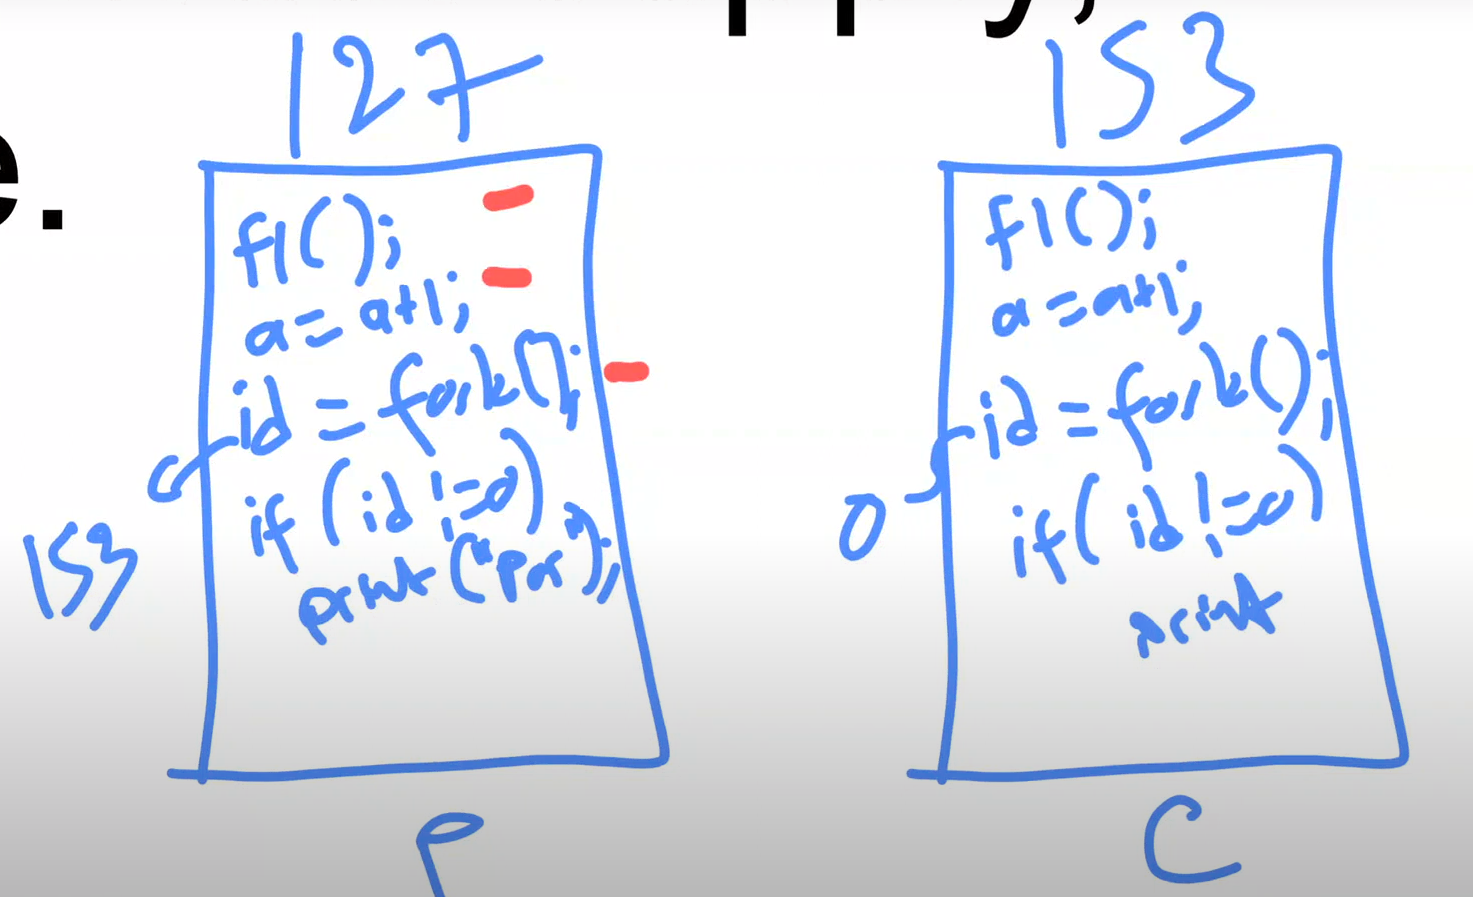 127
f1();
a=a+1;
id = fork();
if (id !=0)
print("Par");
153
P
153
f1();
a=a+1;
id = fork();
if( id !=0)
print
0
C